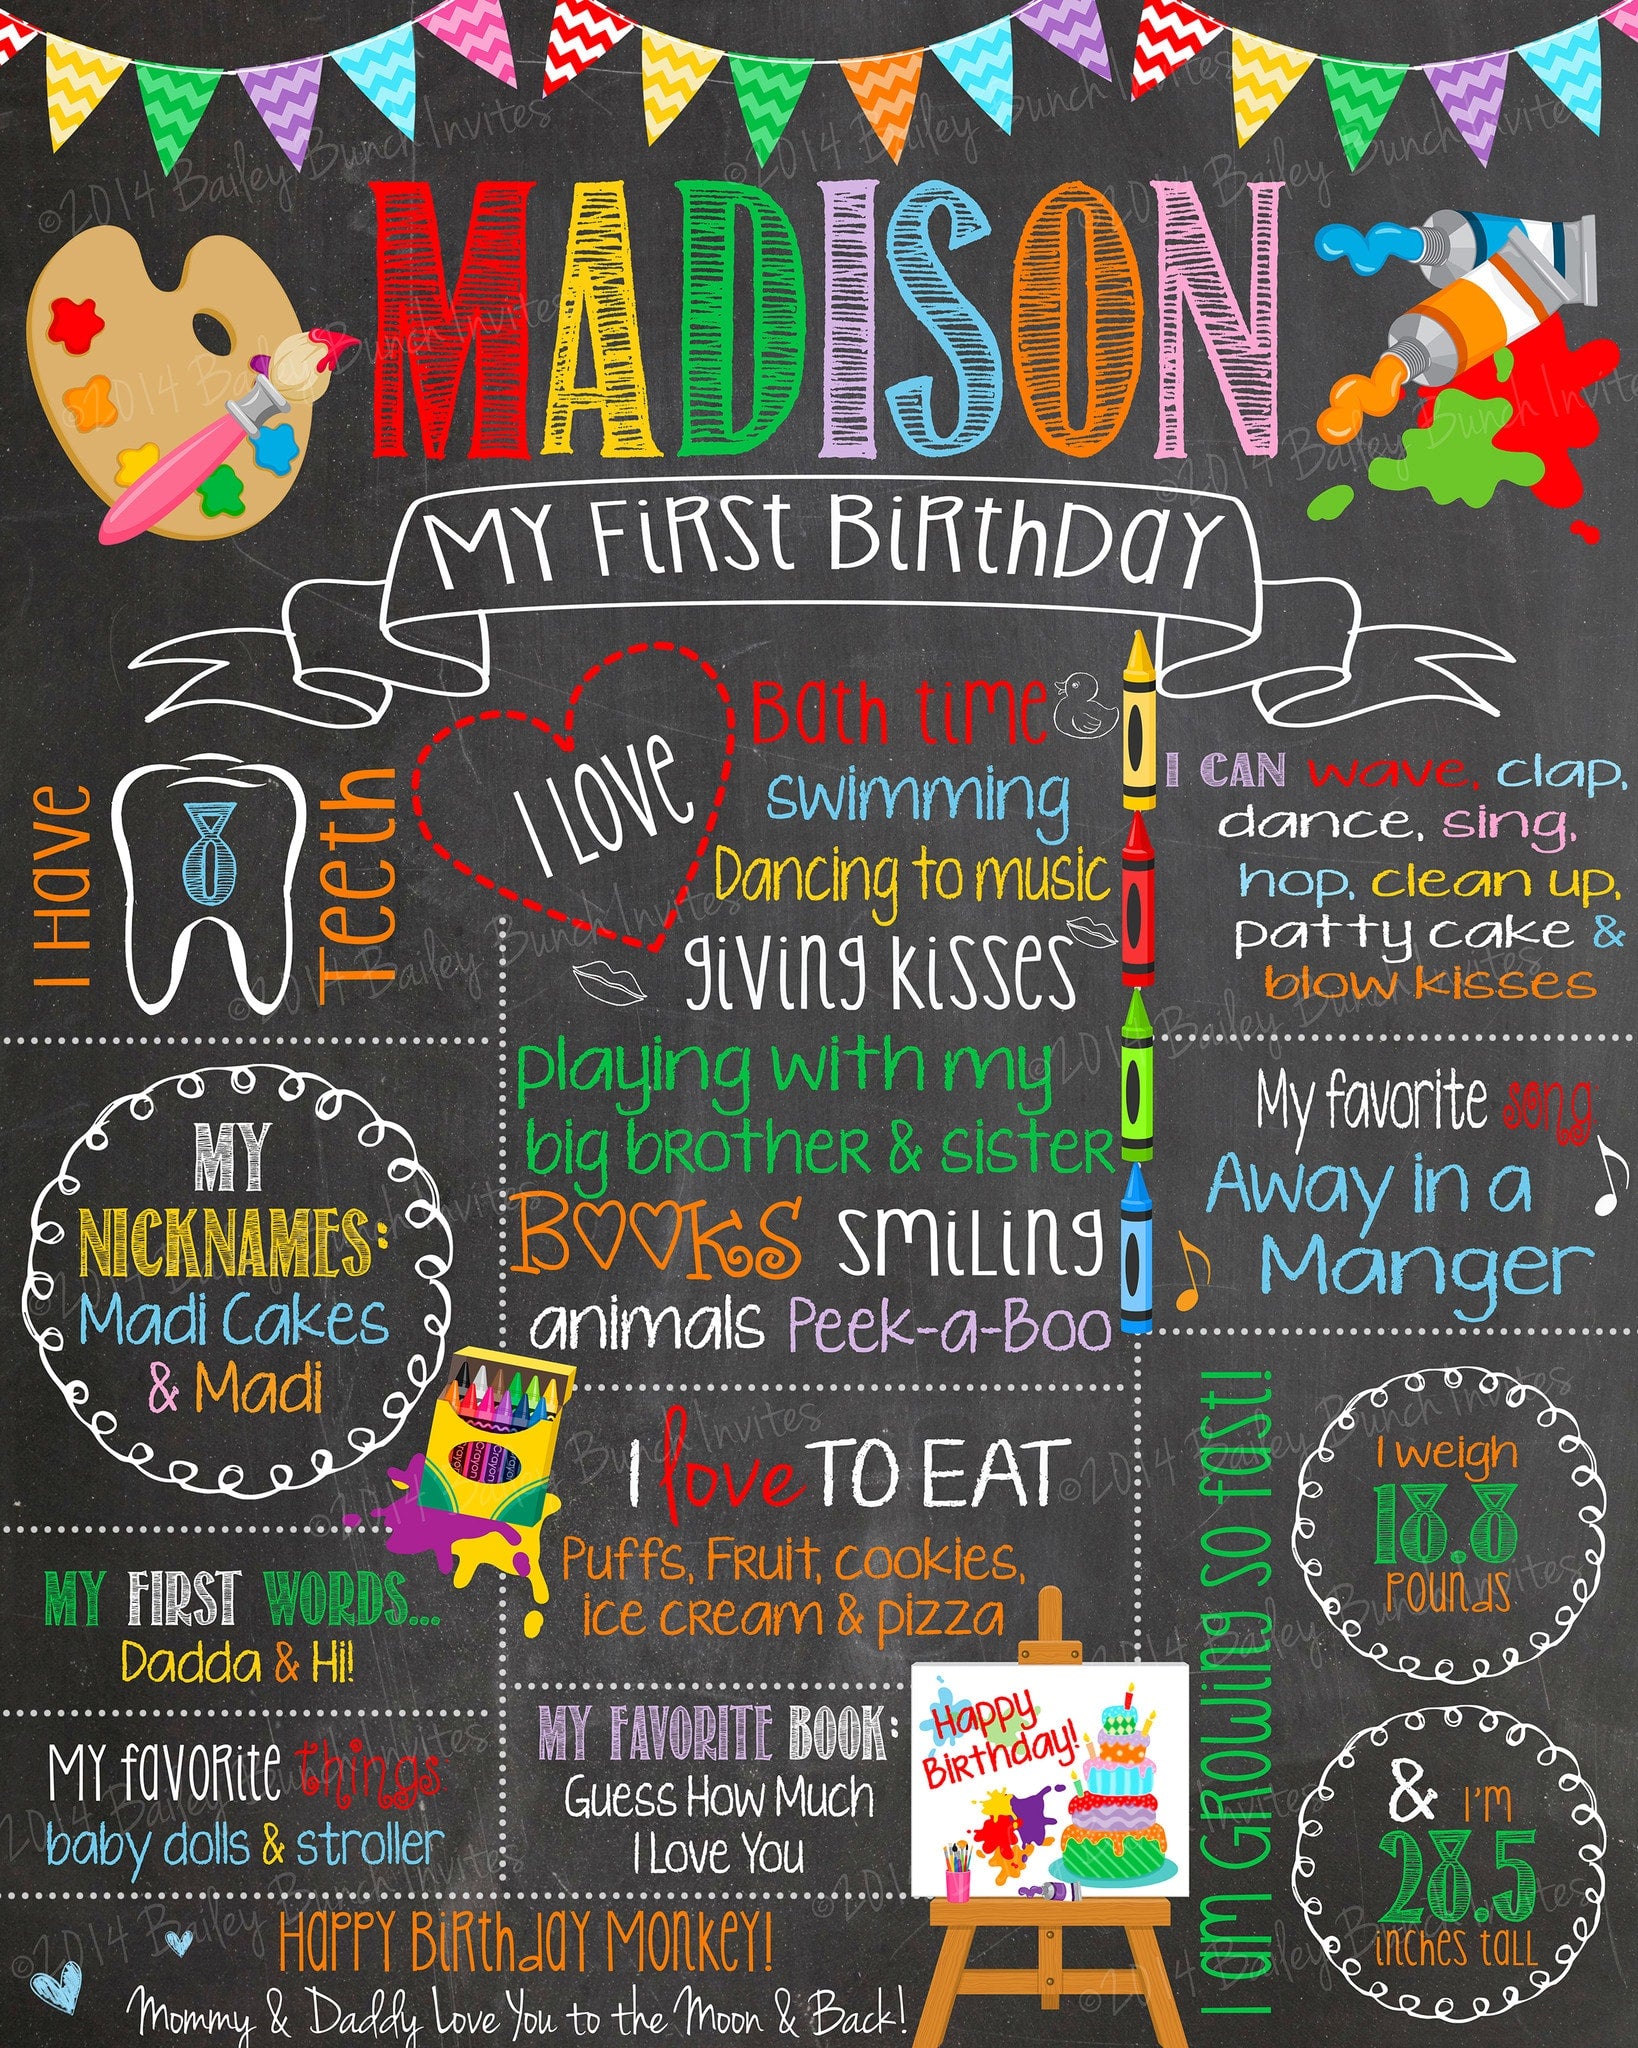 MADISON
MY FIRST BIRTHDAY
I Have
8
Teeth
I LOVE
Bath time
swimming
Dancing to music
giving kisses
playing with my
big brother & sister
BOOKS smiling
animals Peek-a-Boo
I CAN wave, clap,
dance, sing,
hop, clean up,
patty cake &
blow kisses
MY
NICKNAMES:
Madi Cakes
& Madi
My favorite song
Away in a
Manger
I love TO EAT
Puffs, Fruit, cookies,
ice cream & pizza
MY FIRST WORDS...
Dadda & Hi!
MY favorite things
baby dolls & stroller
MY FAVORITE BOOK:
Guess How Much
I Love You
Happy
Birthday!
I am Growing so fast!
I weigh
18.8
pounds
& I'm
28.5
inches tall
Happy Birthday Monkey!
Mommy & Daddy Love You to the Moon & Back!
crayon crayon crayon
©2014 Bailey Bunch Invites